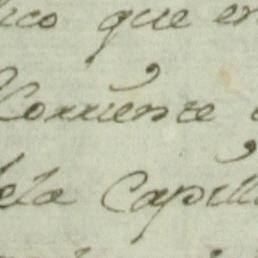 que en
Corriente
dela Capill